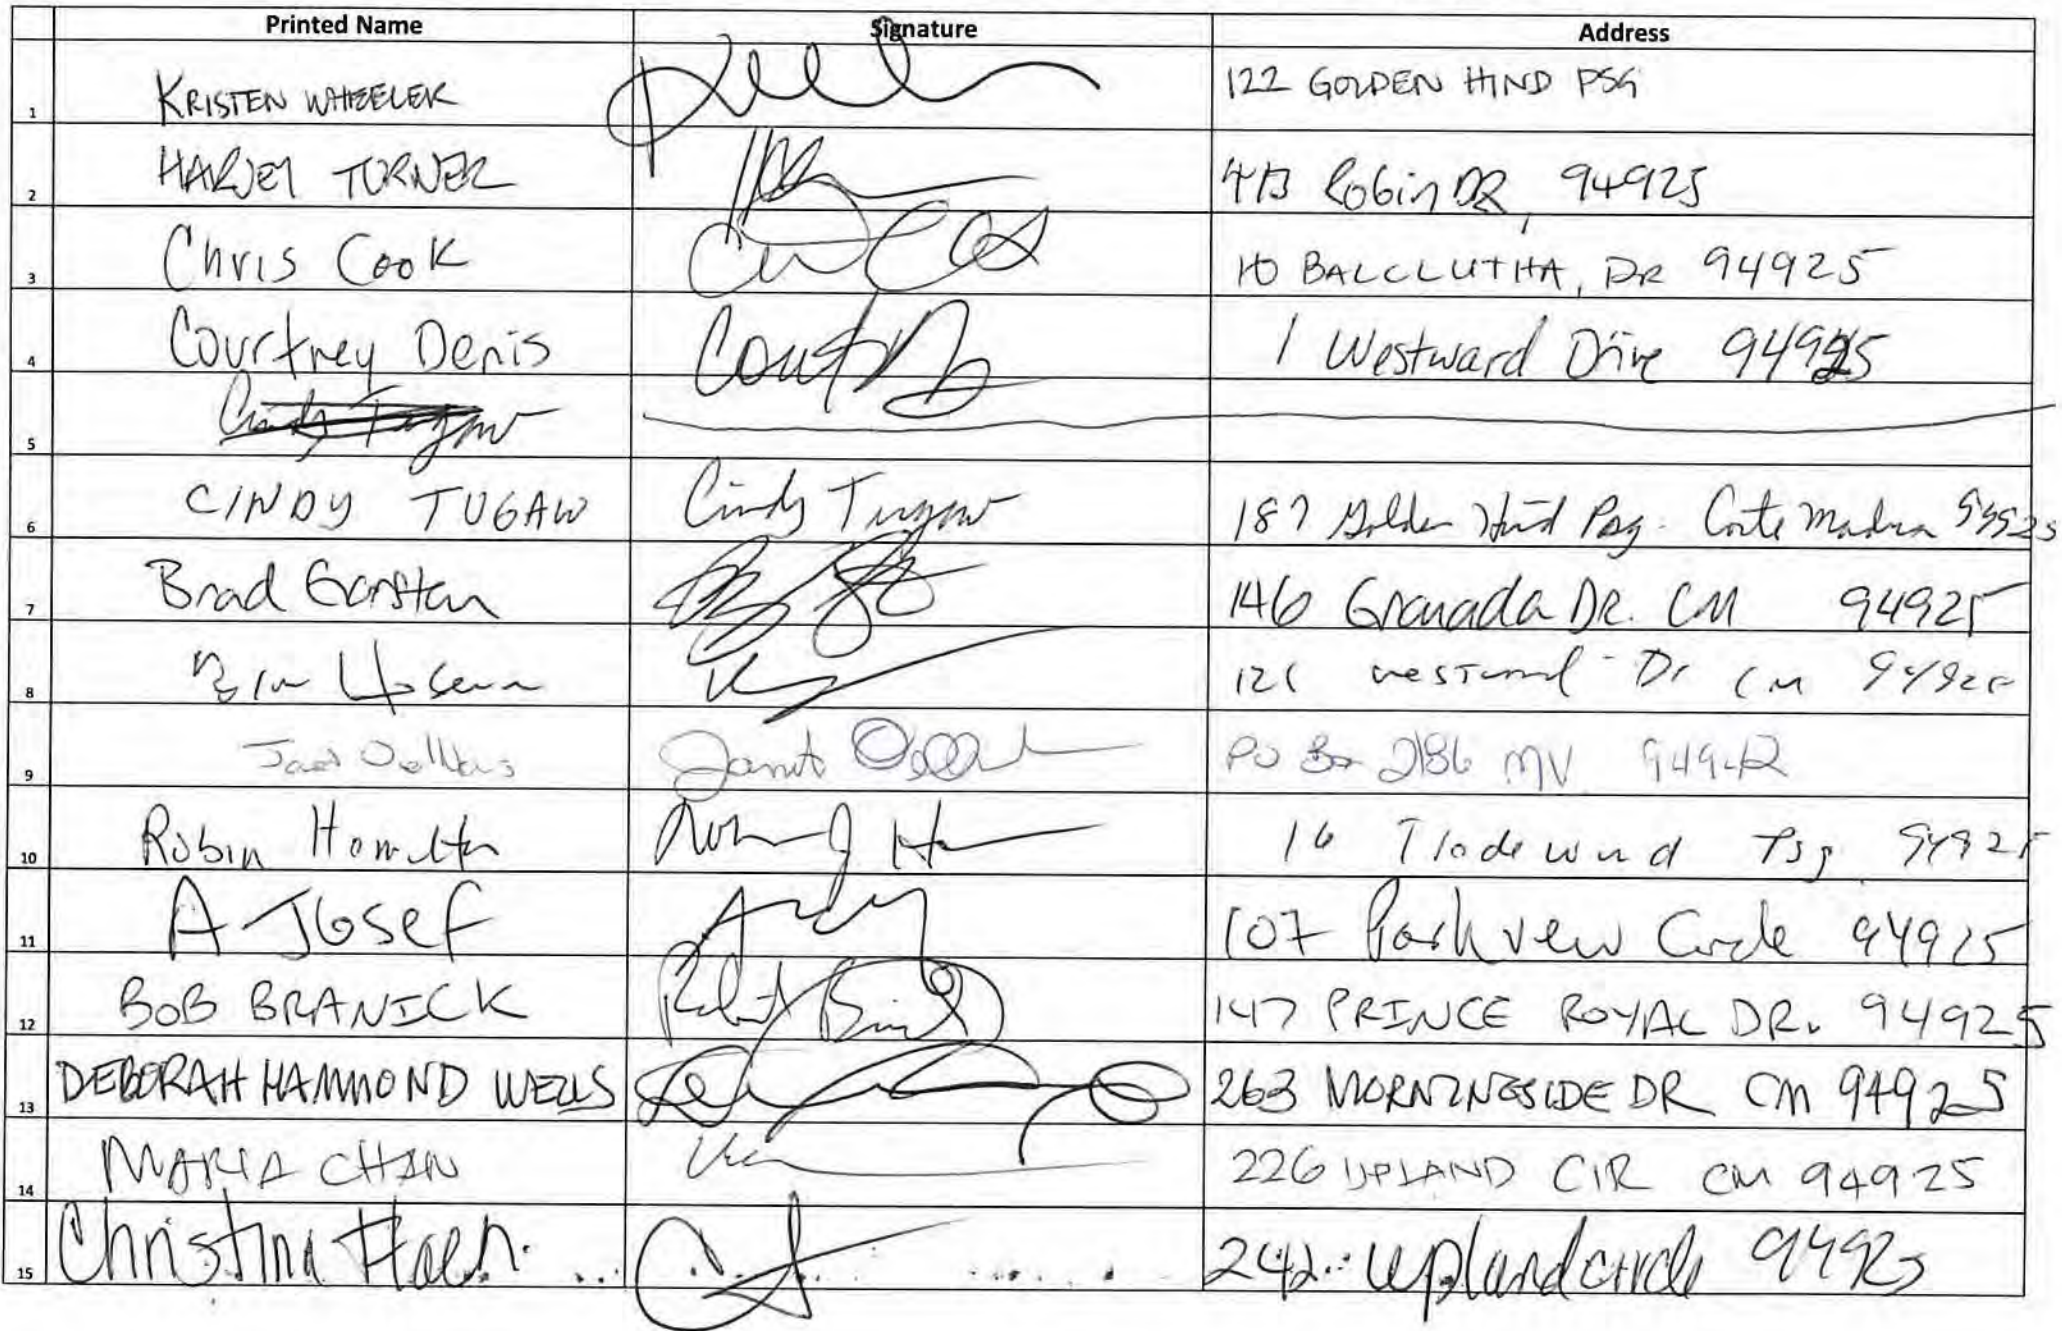 Printed Name Signature Address
1 KRISTEN WHEELER 122 GOLDEN HIND PSG
2 HARVEY TURNER Robin DR, 94925
3 Chris Cook 10 BALCLUTHA, DR 94925
4 Courtney Denis 1 Westward Drive 94925
5 Cindy Tugaw
6 CINDY TUGAW Cindy Tugaw 187 Golden Hind Psg. Corte Madera 94925
7 Brad Gersten 146 Granada DR. CM 94925
8 121 Westward Dr CM 94925
9 Janet PO Box 2186 MV 94942
10 Robin Hamilton 16 Tradewind Psg 94925
11 A Josef 107 Parkview Circle 94925
12 BOB BRANICK 147 PRINCE ROYAL DR. 94925
13 DEBORAH HAMMOND WELLS 263 MORNINGSIDE DR CM 94925
14 MARIA CHAN 226 UPLAND CIR CM 94925
15 Christina 242 Upland circle 94925